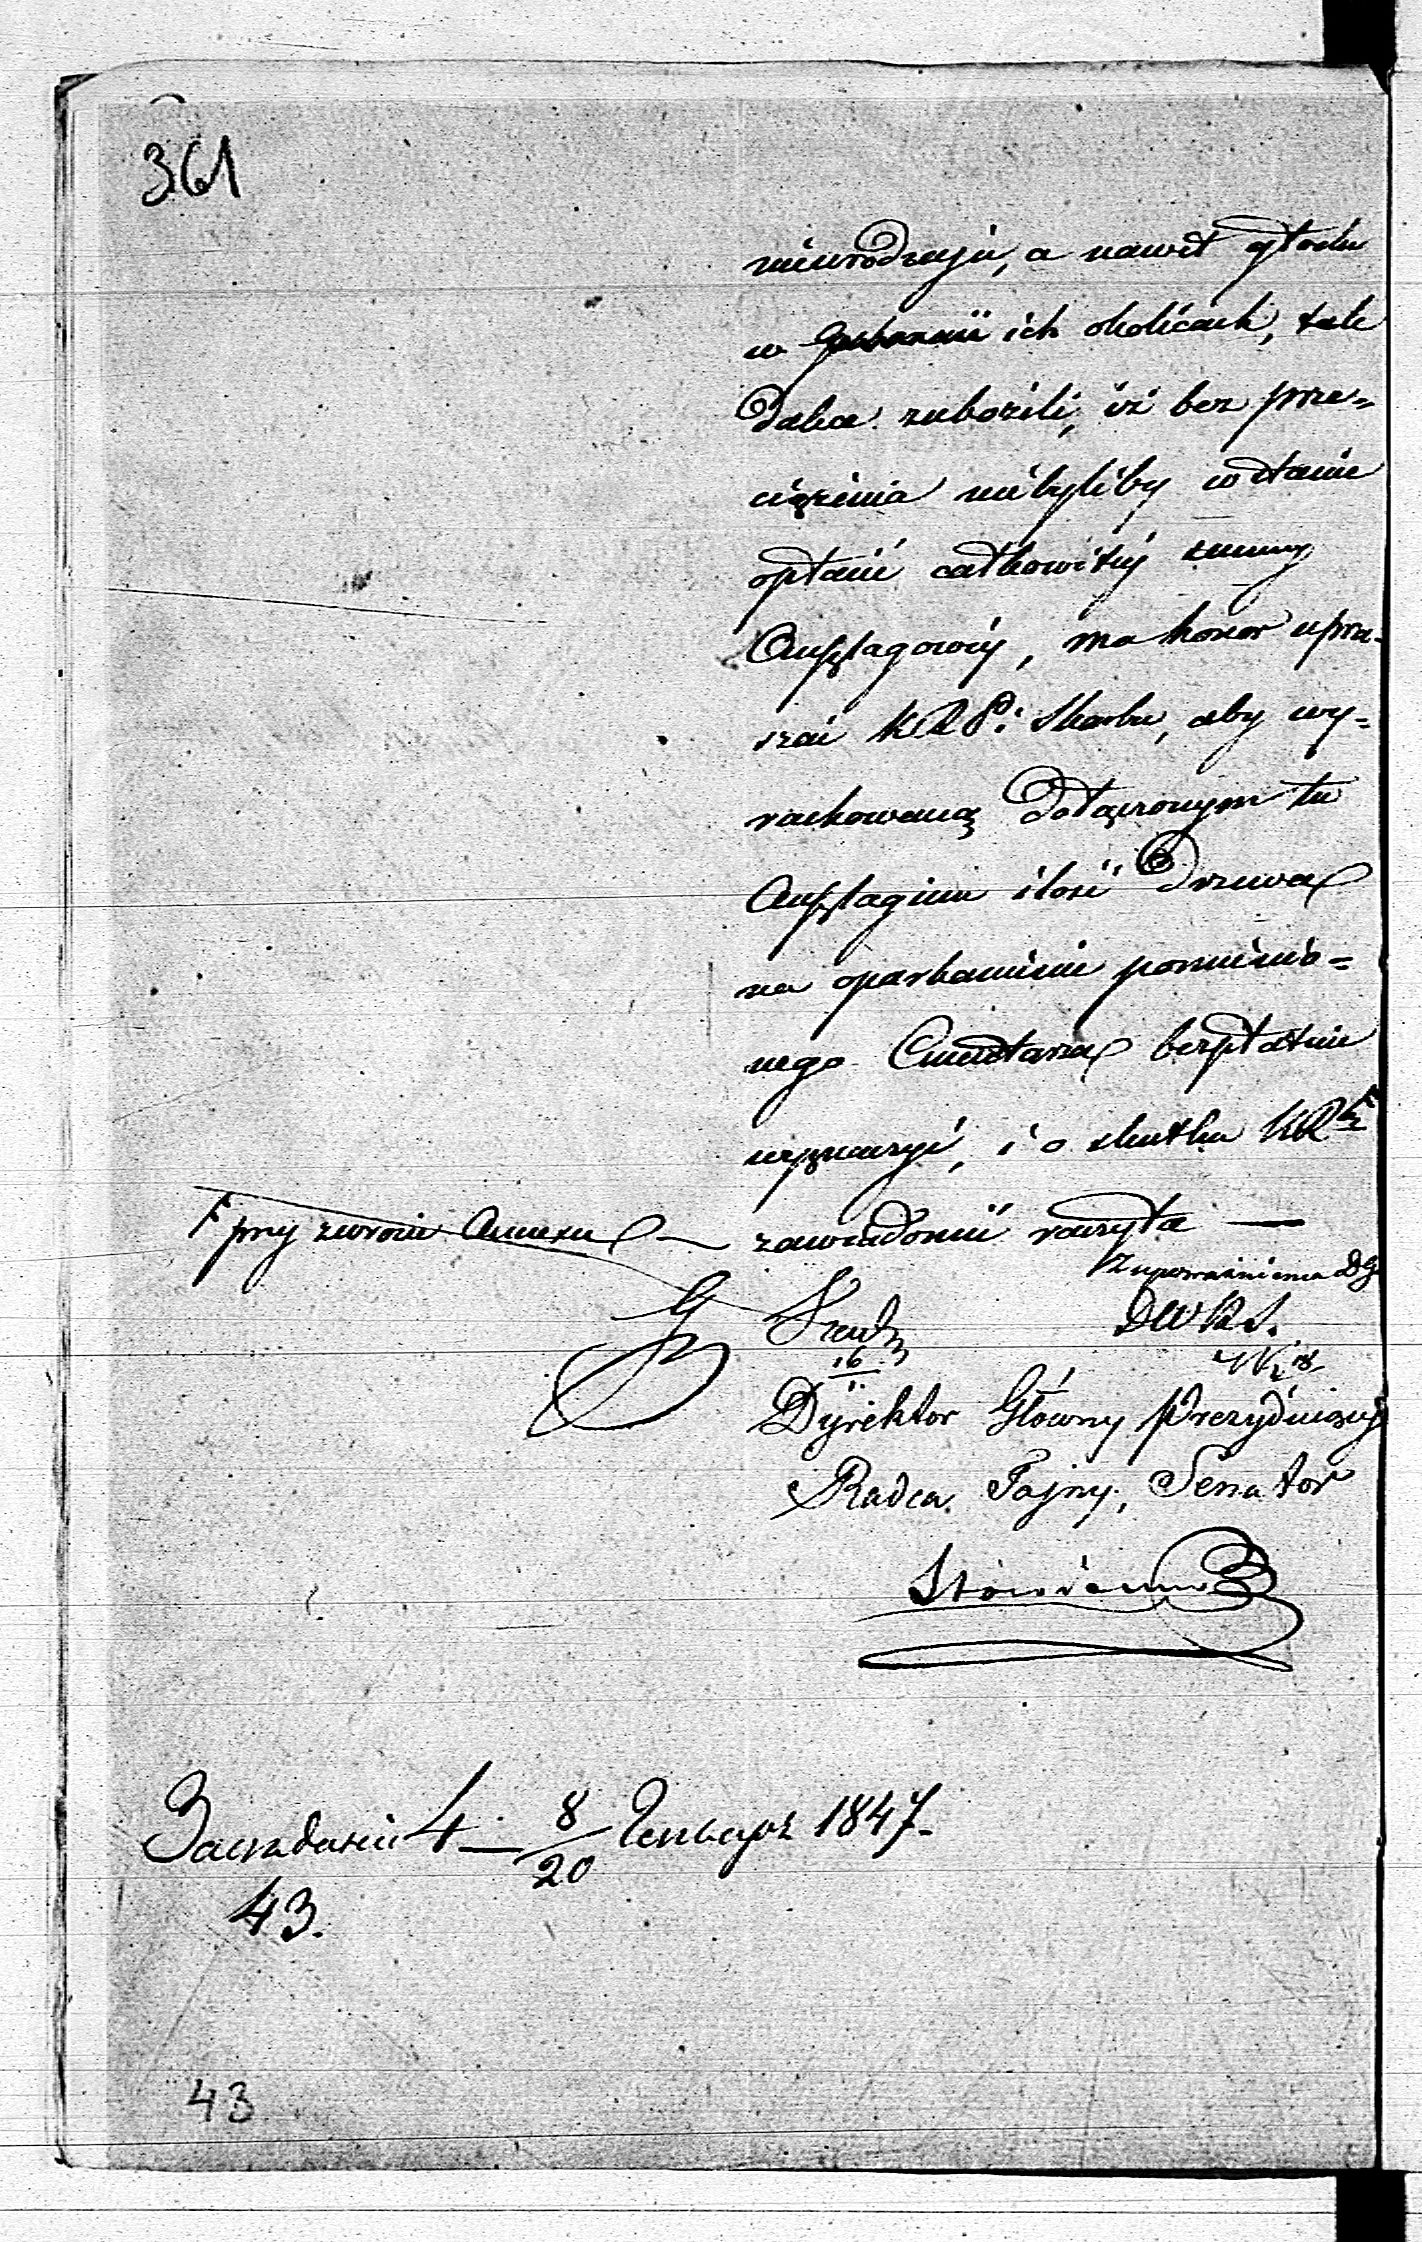 361
nieurodzaju, a nawet głodu
w ich okolicach, tak
dalece zubożeli, iż bez prze=
ciążenia niebyliby wstanie
opłacić całkowitéj summy
Anszlagowéj, ma honor upra-
szać KRP. i Skarbu, aby wy=
rachowaną dołączonym tu
Anszlagiem ilość drzewa
na oparkanienie pomienio=
nego Cmentarza bezpłatnie
wyznaczyć, i o skutku KR
zawiadomić raczyła —
przy zwrocie Annexu —
z upoważnienia DG
16
Dyrektor Główny Prezydujący
Radca Tajny, Senator
Заседание 4 — 8/20 Генваря 1847.
43.
43